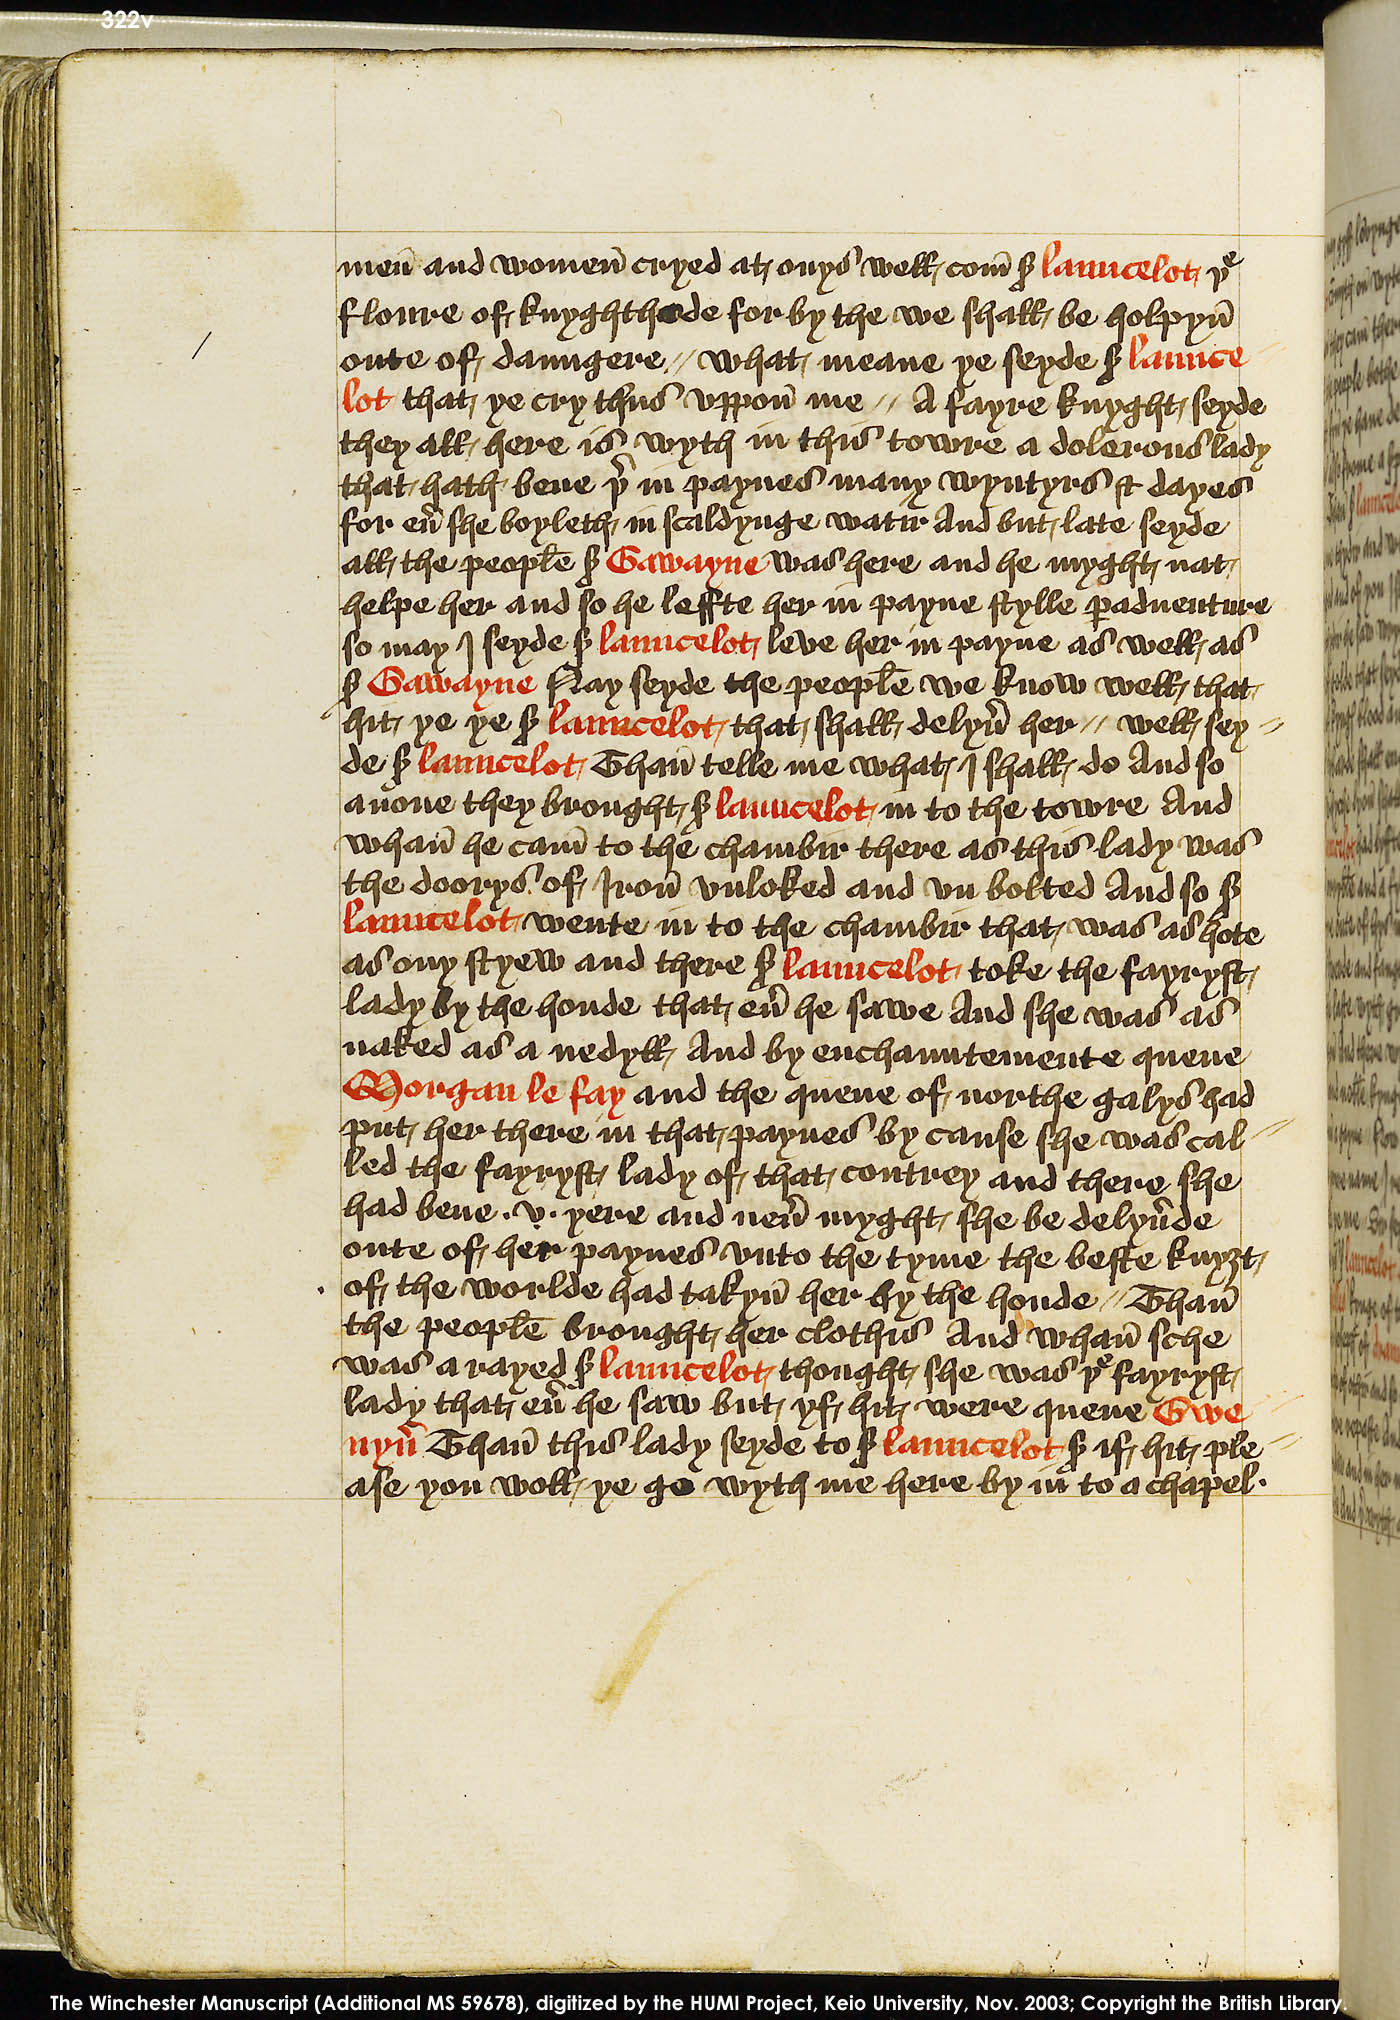 322v
men̄ and women̄ cryed at onys well com̄ sr launcelot þe
floure of knyghthode for by the we shall be holpyn̄
oute of daungere // what meane ye seyde sr launce
lot that ye cry thus vppon̄ me // A fayre knyght seyde
they all here is wyth in this towre a dolerous lady
that hath bene þr in paynes many wyntyrs & dayes
for eū she boyleth in scaldynge watir And but late seyde
all the people sr Gawayne was here and he myght nat
helpe her and so he leffte her in payne stylle ꝑaduenture
so may I seyde sr launcelot leve her in payne as well as
sr Gawayne Nay seyde the people we know well that
hit ys ye sr launcelot that shall delyū her // well sey
de sr launcelot Than̄ telle me what I shall do And so
anone they brought sr launcelot in to the towre And
whan̄ he cam̄ to the chambir there as this lady was
the doorys of Iron̄ vnloked and vn bolted And so sr
launcelot wente in to the chambir that was as hote
as ony styew and there sr launcelot toke the fayryst
lady by the honde that eū he sawe And she was as
naked as a nedyll And by enchauntemente quene
Morgan le fay and the quene of northe galys had
put her there in that paynes by cause she was cal
led the fayryst lady of that contrey and there she
had bene .v. yere and neū myght she be delyūde
oute of her paynes vnto the tyme the beste knyȝt
of the worlde had takyn̄ her by the honde // Than̄
the people brought her clothis And whan̄ sche
was arayed sr launcelot thought she was þe fayryst
lady that eū he saw but yf hit were quene Gwe
nyū Than̄ this lady seyde to sr launcelot sr if hit ple
ase you woll ye go wyth me here by in to a chapel.
The Winchester Manuscript (Additional MS 59678), digitized by the HUMI Project, Keio University, Nov. 2003; Copyright the British Library.